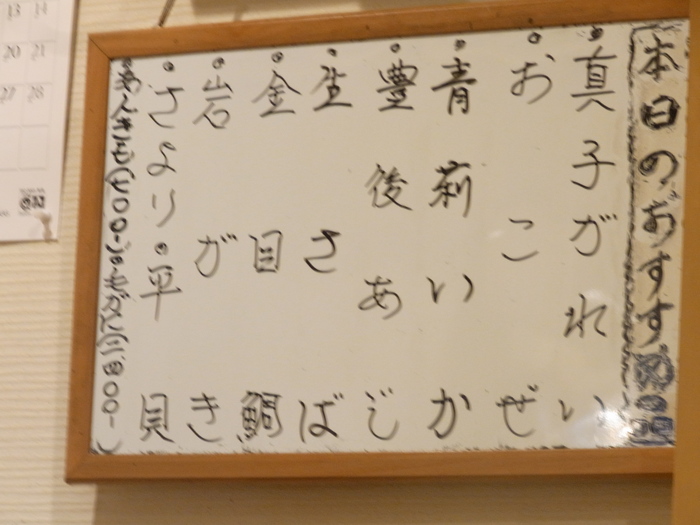 本日のおすすめ
・真子がれい
・おこぜ
・青莉いか
・豊後あじ
・生さば
・金目鯛
・岩がき
・さより・平貝
・あんきも(七00-)・毛がに(二四00-)
13 14
20 21
27 28